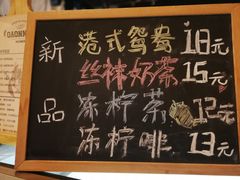 新品
港式鸳鸯 18元
丝袜奶茶 15元
冻柠茶 12元
冻柠啡 13元